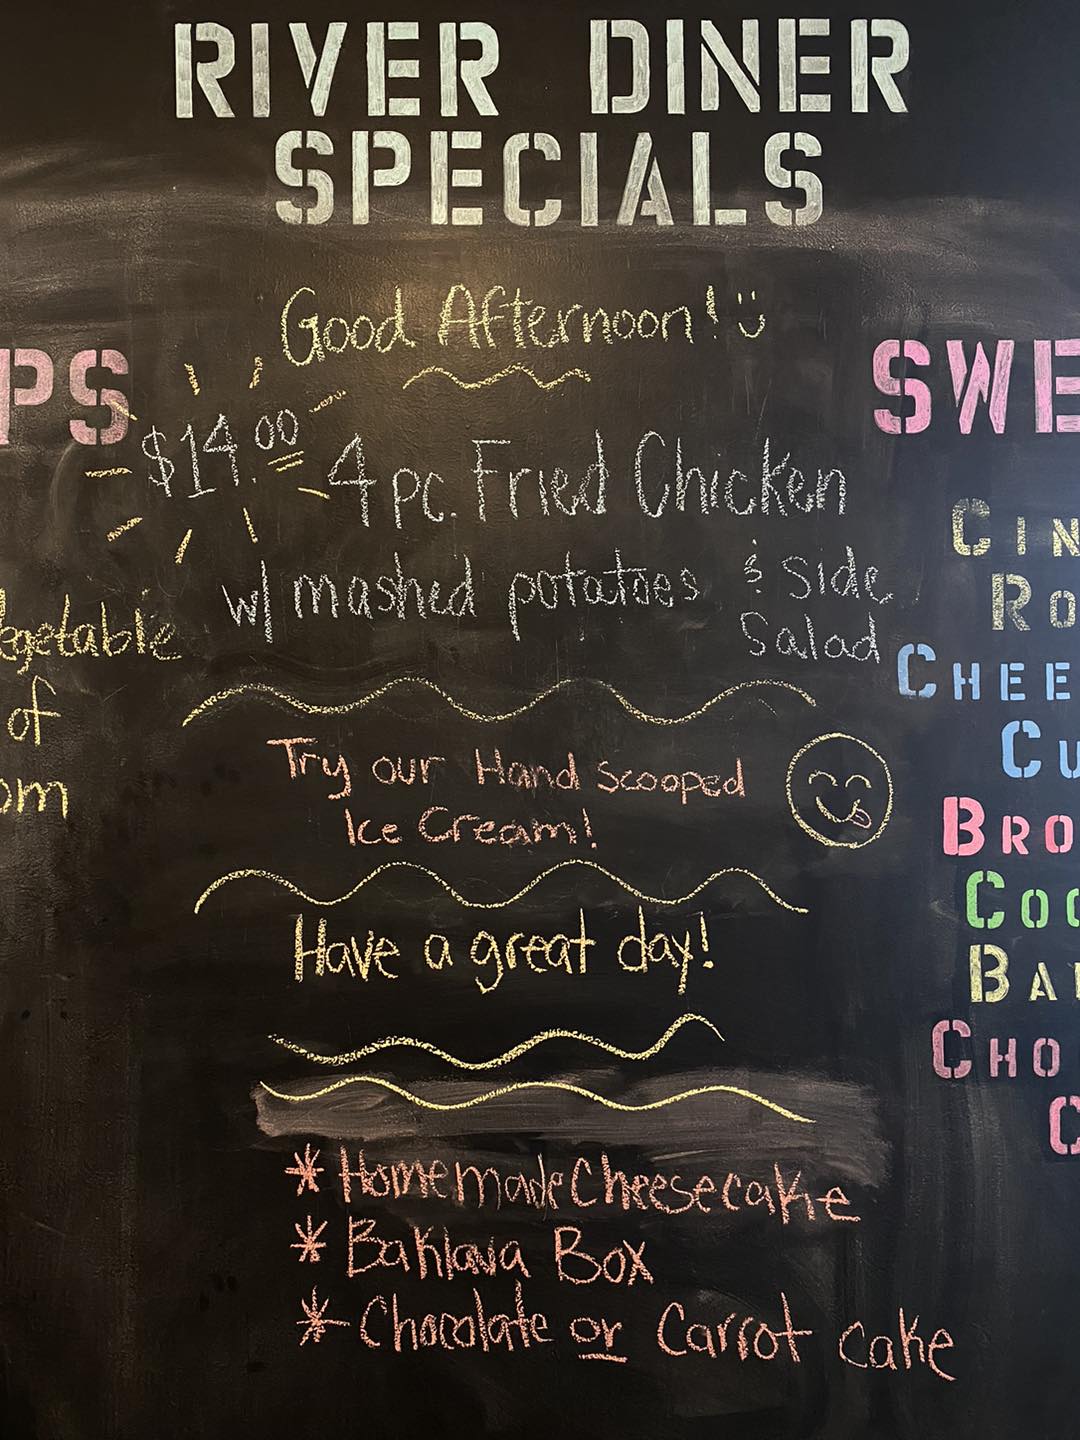 RIVER DINER
SPECIALS
Good Afternoon!
$14.00 4 pc. Fried Chicken
w/ mashed potatoes & Side
Salad
Try our Hand Scooped
Ice Cream!
Have a great day!
* Homemade Cheesecake
* Baklava Box
* Chocolate or Carrot cake
PS
egetable
of
om
SWE
CIN
RO
CHEE
CU
BRO
COO
BA
CHO
C